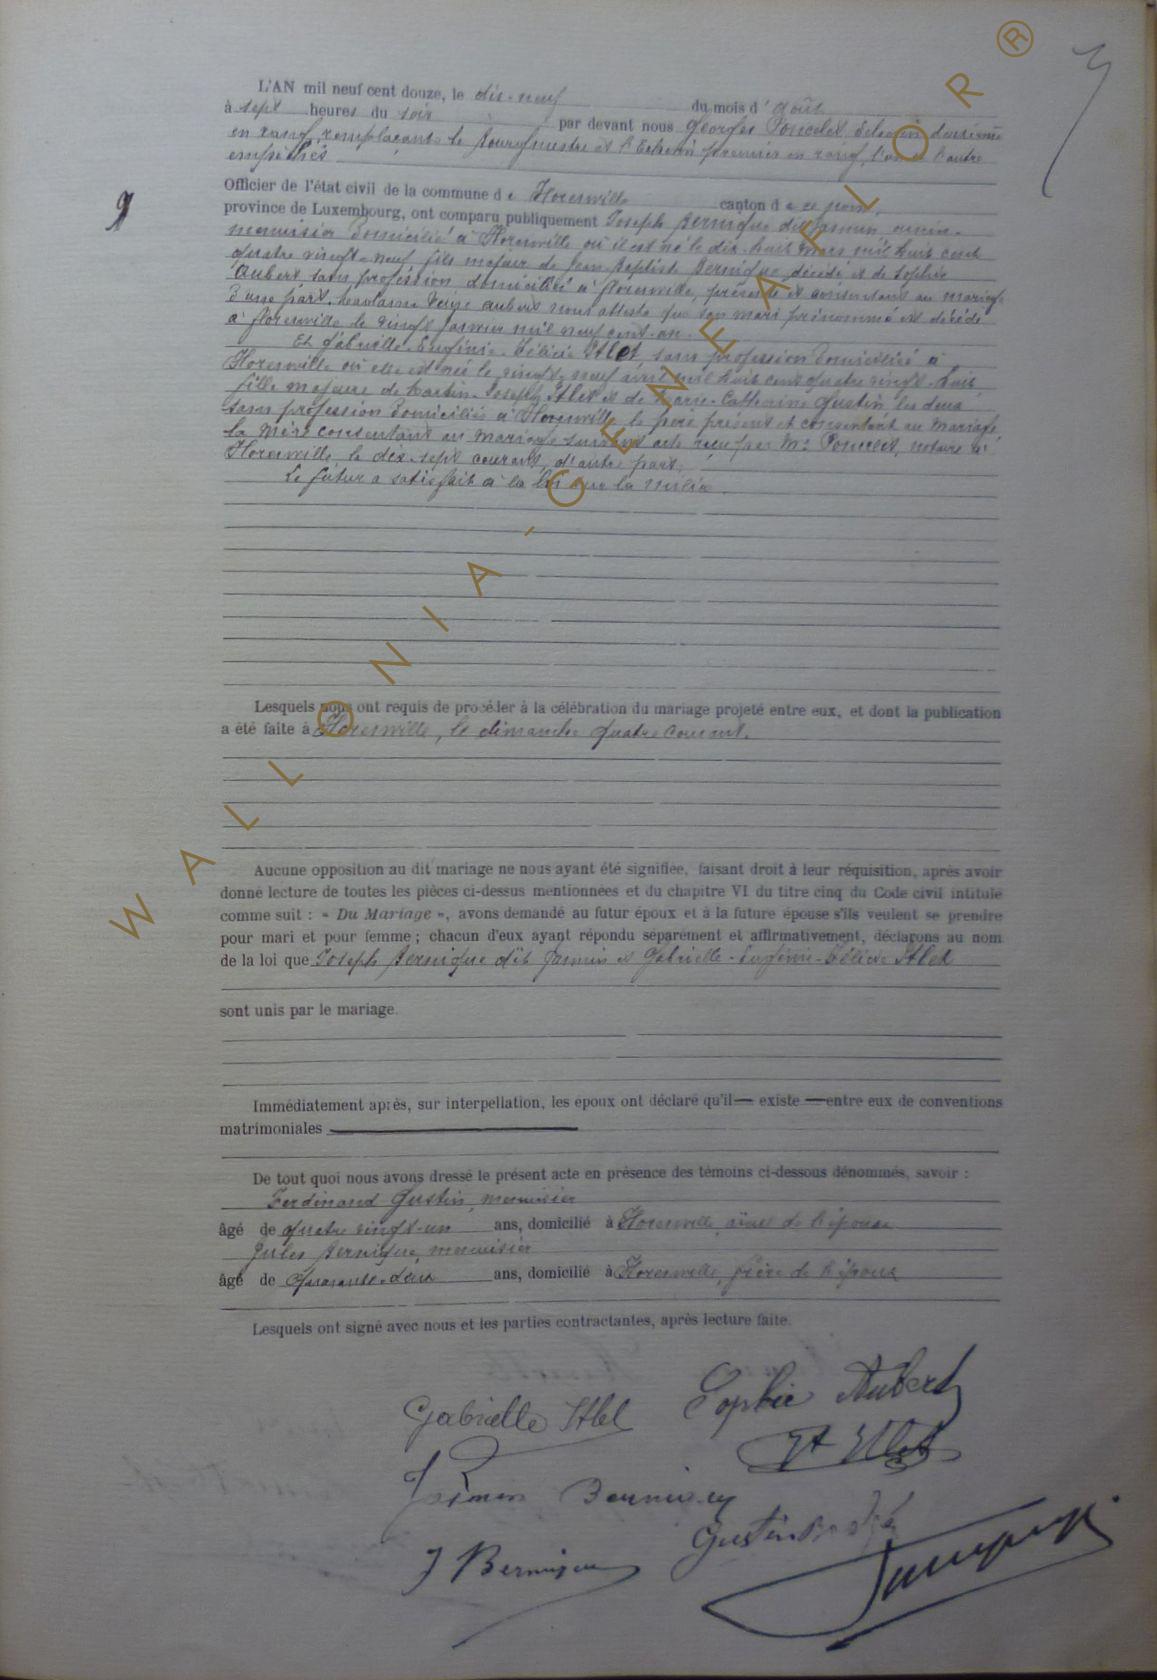 L'AN mil neuf cent douze, le dix-neuf du mois d'août
à sept heures du soir par devant nous Georges Poncelet Echevin deuxième
en rang, remplaçant le Bourgmestre et l'Echevin premier en rang, l'un et l'autre
empêchés
Officier de l'état civil de la commune de Florenville canton de ce nom,
province de Luxembourg, ont comparu publiquement Joseph Bernique dit Jasmin
menuisier domicilié à Florenville où il est né le dix-huit mars mil huit cent
quatre vingt-neuf fils majeur de Jean Baptiste Bernique décédé et de Sophie
Aubert sans profession domiciliée à Florenville, présente et consentant au mariage
d'une part. Madame Veuve Aubert nous atteste que son mari prénommé est décédé
à Florenville le vingt janvier mil neuf cent-un.
Et Gabrielle-Eugénie-Félicie Itlet, sans profession domiciliée à
Florenville où elle est née le vingt-neuf avril mil huit cent quatre vingt-huit
fille majeure de Martin-Joseph Itlet et de Marie-Catherine Gustin les deux
sans profession domiciliés à Florenville, le père présent et consentant au mariage
la mère consentant au mariage suivant acte reçu par Me Poncelet, notaire à
Florenville le dix-sept courant, d'autre part.
Le futur a satisfait à la loi sur la milice.
Lesquels nous ont requis de procéder à la célébration du mariage projeté entre eux, et dont la publication
a été faite à Florenville, le dimanche quatre courant.
Aucune opposition au dit mariage ne nous ayant été signifiée, faisant droit à leur réquisition, après avoir
donné lecture de toutes les pièces ci-dessus mentionnées et du chapitre VI du titre cinq du Code civil intitulé
comme suit : « Du Mariage », avons demandé au futur époux et à la future épouse s'ils veulent se prendre
pour mari et pour femme ; chacun d'eux ayant répondu séparement et affirmativement, déclarons au nom
de la loi que Joseph Bernique dit Jasmin et Gabrielle-Eugénie-Félicie Itlet
sont unis par le mariage.
Immédiatement après, sur interpellation, les époux ont déclaré qu'il — existe — entre eux de conventions
matrimoniales
De tout quoi nous avons dressé le présent acte en présence des témoins ci-dessous dénommés, savoir :
Ferdinand Gustin, menuisier
âgé de quatre vingt-un ans, domicilié à Florenville, aïeul de l'épouse
Jules Bernique, menuisier
âgé de quarante-deux ans, domicilié à Florenville, frère de l'époux
Lesquels ont signé avec nous et les parties contractantes, après lecture faite.
Gabrielle Itlet Sophie Aubert
Itlet
Bernique
Gustin
J Bernique
WALLONIA-GENEAFLOR®